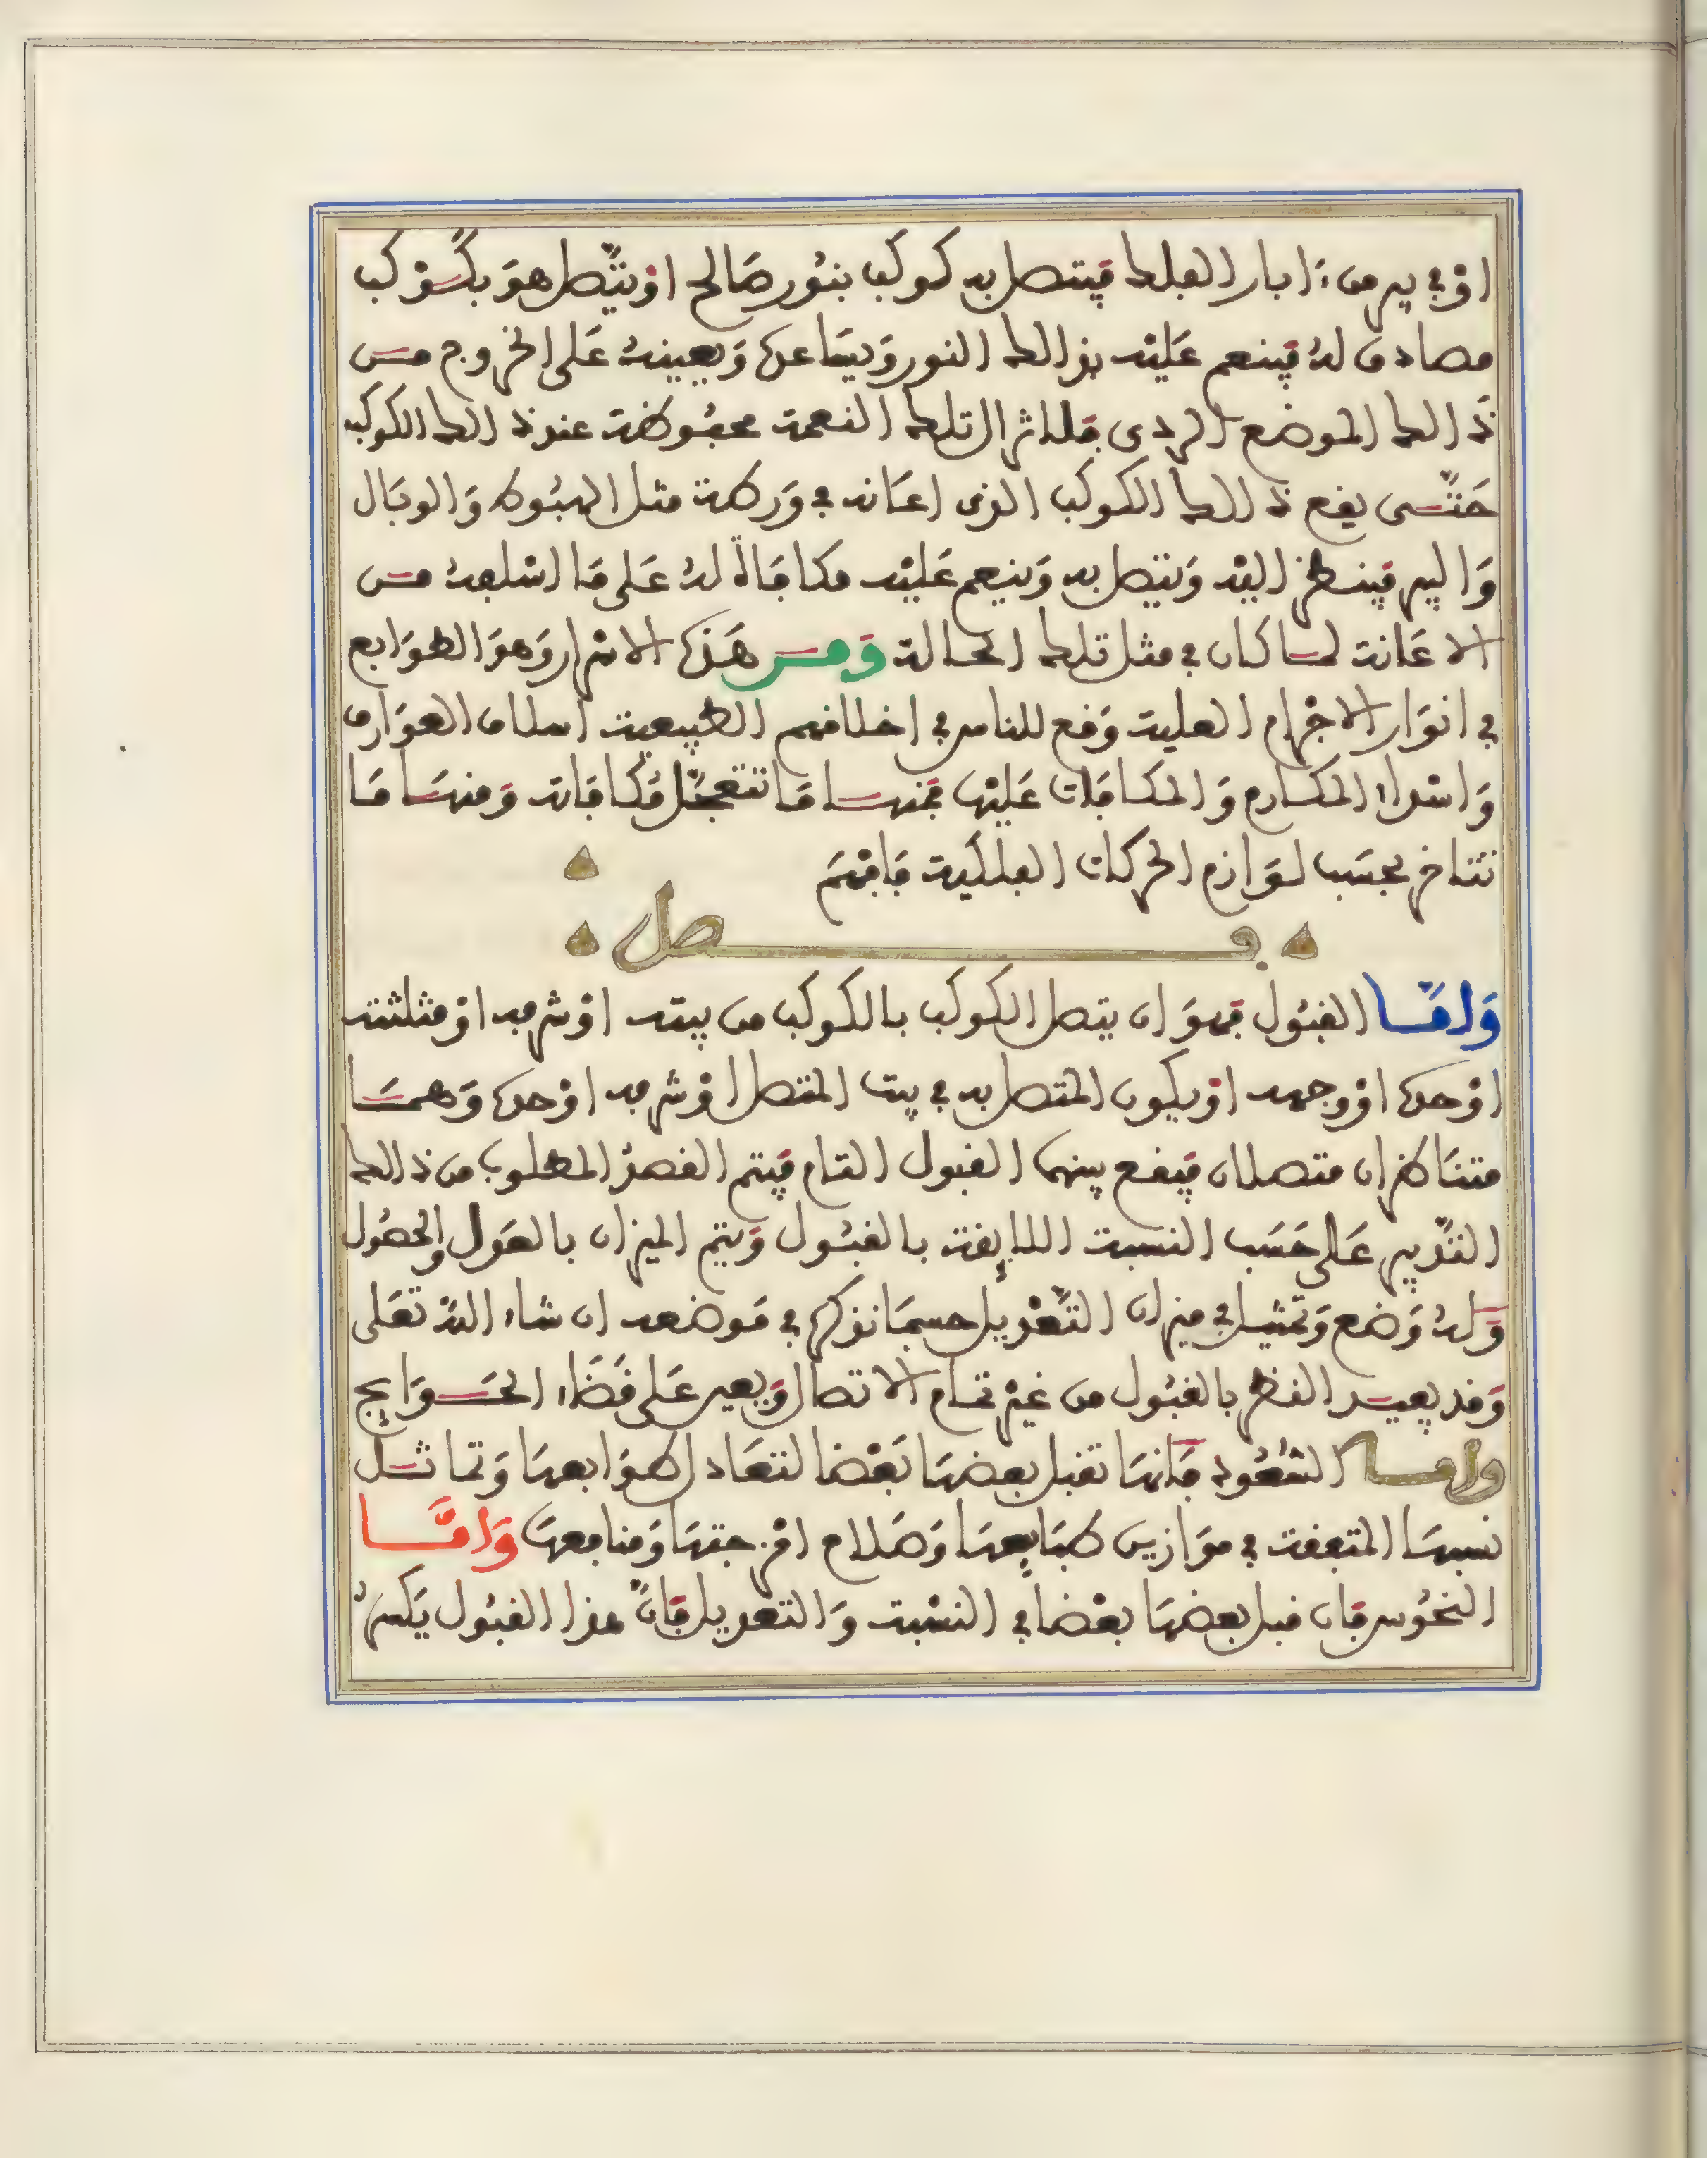 او في بير من ءابار الفلك فيتصل به كوكب بنور صالح او يتصل هو بكوكب
مصادق له فينعم عليه بذالك النور ويساعده ويعينه على الخروج من
ذالك الموضع الردى فلا تزال تلك النعمة محفوظة عند ذالك الكوكب
حتى يقع ذالك الكوكب الذى اعانه في ورطة مثل الهبوط والوبال
والبير فينظر اليه ويتصل به وينعم عليه مكافاة له على ما اسلفه من
الاعانة لما كان في مثل تلك الحالة ومن هذه الاسرار وهو الطوابع
في انوار الاجرام العلية وقع للناس في اخلاقهم الطبيعية اسلاف العوارف
واسداء المكارم والمكافات عليها فمنها ما تتعجل مكافاته ومنها ما
تتاخر بحسب لوازم الحركات الفلكية فافهم
فصل
واما القبول فهو ان يتصل الكوكب بالكوكب من بيته او شرفه او مثلثته
او حده او وجهه او يكون المتصل به في بيت المتصل او شرفه او حده وهما
متناظران متصلان فيقع بينهما القبول التام فيتم القصد المطلوب من ذالك
التدبير على حسب النسبة اللايقة بالقبول ويتم الميزان بالعول والحصول
وله وضع وتمثيل في ميزان التعديل حسبما نذكره في موضعه ان شاء الله تعلى
وقد يفيد النظر بالقبول من غير تمام الاتصال ويعين على قضاء الحوايج
واما السعود فانها تقبل بعضها بعضا لتعادل طوابعها وتماثل
نسبها المتفقة في موازين طبايعها وصلاح امزجتها ومنافعها واما
النحوس فان قبل بعضها بعضا في النسبة والتعديل فان هذا القبول يكسر